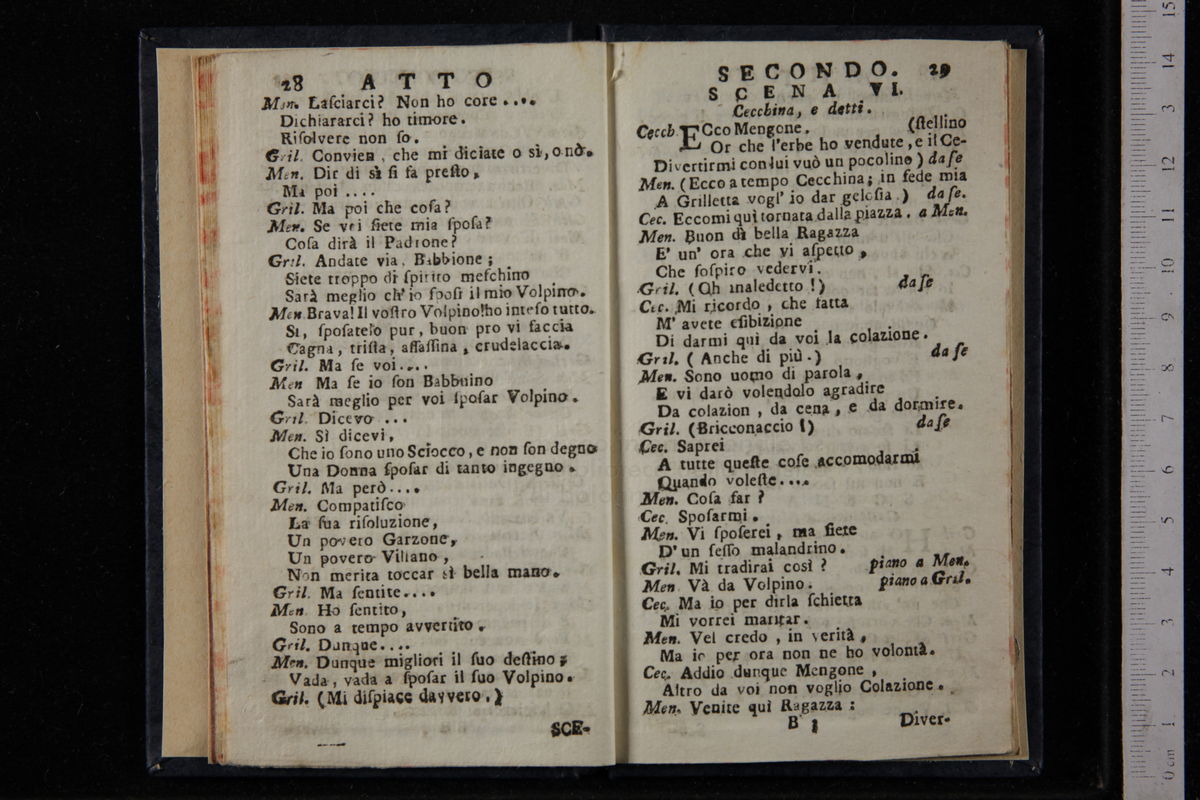 28 ATTO
Men. Laſciarci? Non ho core ....
Dichiararci? ho timore.
Riſolvere non ſo.
Gril. Convien, che mi diciate o sì, o nò.
Men. Dir di sì ſi fa preſto,
Ma poi ....
Gril. Ma poi che coſa?
Men. Se voi ſiete mia ſpoſa?
Coſa dirà il Padrone?
Gril. Andate via, Babbione;
Siete troppo di ſpirito meſchino
Sarà meglio ch'io ſpoſi il mio Volpino.
Men. Brava! Il voſtro Volpino! ho inteſo tutto.
Si, ſpoſatelo pur, buon pro vi faccia
Cagna, triſta, aſſaſſina, crudelaccia.
Gril. Ma ſe voi....
Men Ma ſe io ſon Babbuino
Sarà meglio per voi ſpoſar Volpino.
Gril. Dicevo ...
Men. Sì dicevi,
Che io ſono uno Sciocco, e non ſon degno
Una Donna ſpoſar di tanto ingegno.
Gril. Ma però....
Men. Compatiſco
La ſua riſoluzione,
Un povero Garzone,
Un povero Villano,
Non merita toccar sì bella mano.
Gril. Ma ſentite....
Men. Ho ſentito,
Sono a tempo avvertito.
Gril. Dunque....
Men. Dunque migliori il ſuo deſtino;
Vada, vada a ſpoſar il ſuo Volpino.
Gril. (Mi diſpiace davvero.)
SCE-
SECONDO. 29
SCENA VI.
Cecchina, e detti.
Cecch. ECco Mengone. (ſtellino
Or che l'erbe ho vendute, e il Ce-
Divertirmi con lui vuò un pocolino) da ſe
Men. (Ecco a tempo Cecchina; in fede mia
A Grilletta vogl' io dar geloſia.) da ſe.
Cec. Eccomi quì tornata dalla piazza. a Men.
Men. Buon dì bella Ragazza
E' un' ora che vi aſpetto,
Che ſoſpiro vedervi.
Gril. (Oh maledetto!) da ſe
Cec. Mi ricordo, che fatta
M' avete eſibizione
Di darmi quì da voi la colazione.
Gril. (Anche di più.) da ſe
Men. Sono uomo di parola,
E vi darò volendolo agradire
Da colazion, da cena, e da dormire.
Gril. (Bricconaccio!) da ſe
Cec. Saprei
A tutte queſte coſe accomodarmi
Quando voleſte....
Men. Coſa far?
Cec. Spoſarmi.
Men. Vi ſpoſerei, ma ſiete
D' un ſeſſo malandrino.
Gril. Mi tradirai così? piano a Men.
Men Và da Volpino. piano a Gril.
Cec. Ma io per dirla ſchietta
Mi vorrei maritar.
Men. Vel credo, in verità,
Ma io per ora non ne ho volontà.
Cec. Addio dunque Mengone,
Altro da voi non voglio Colazione.
Men. Venite quì Ragazza:
B 3 Diver-